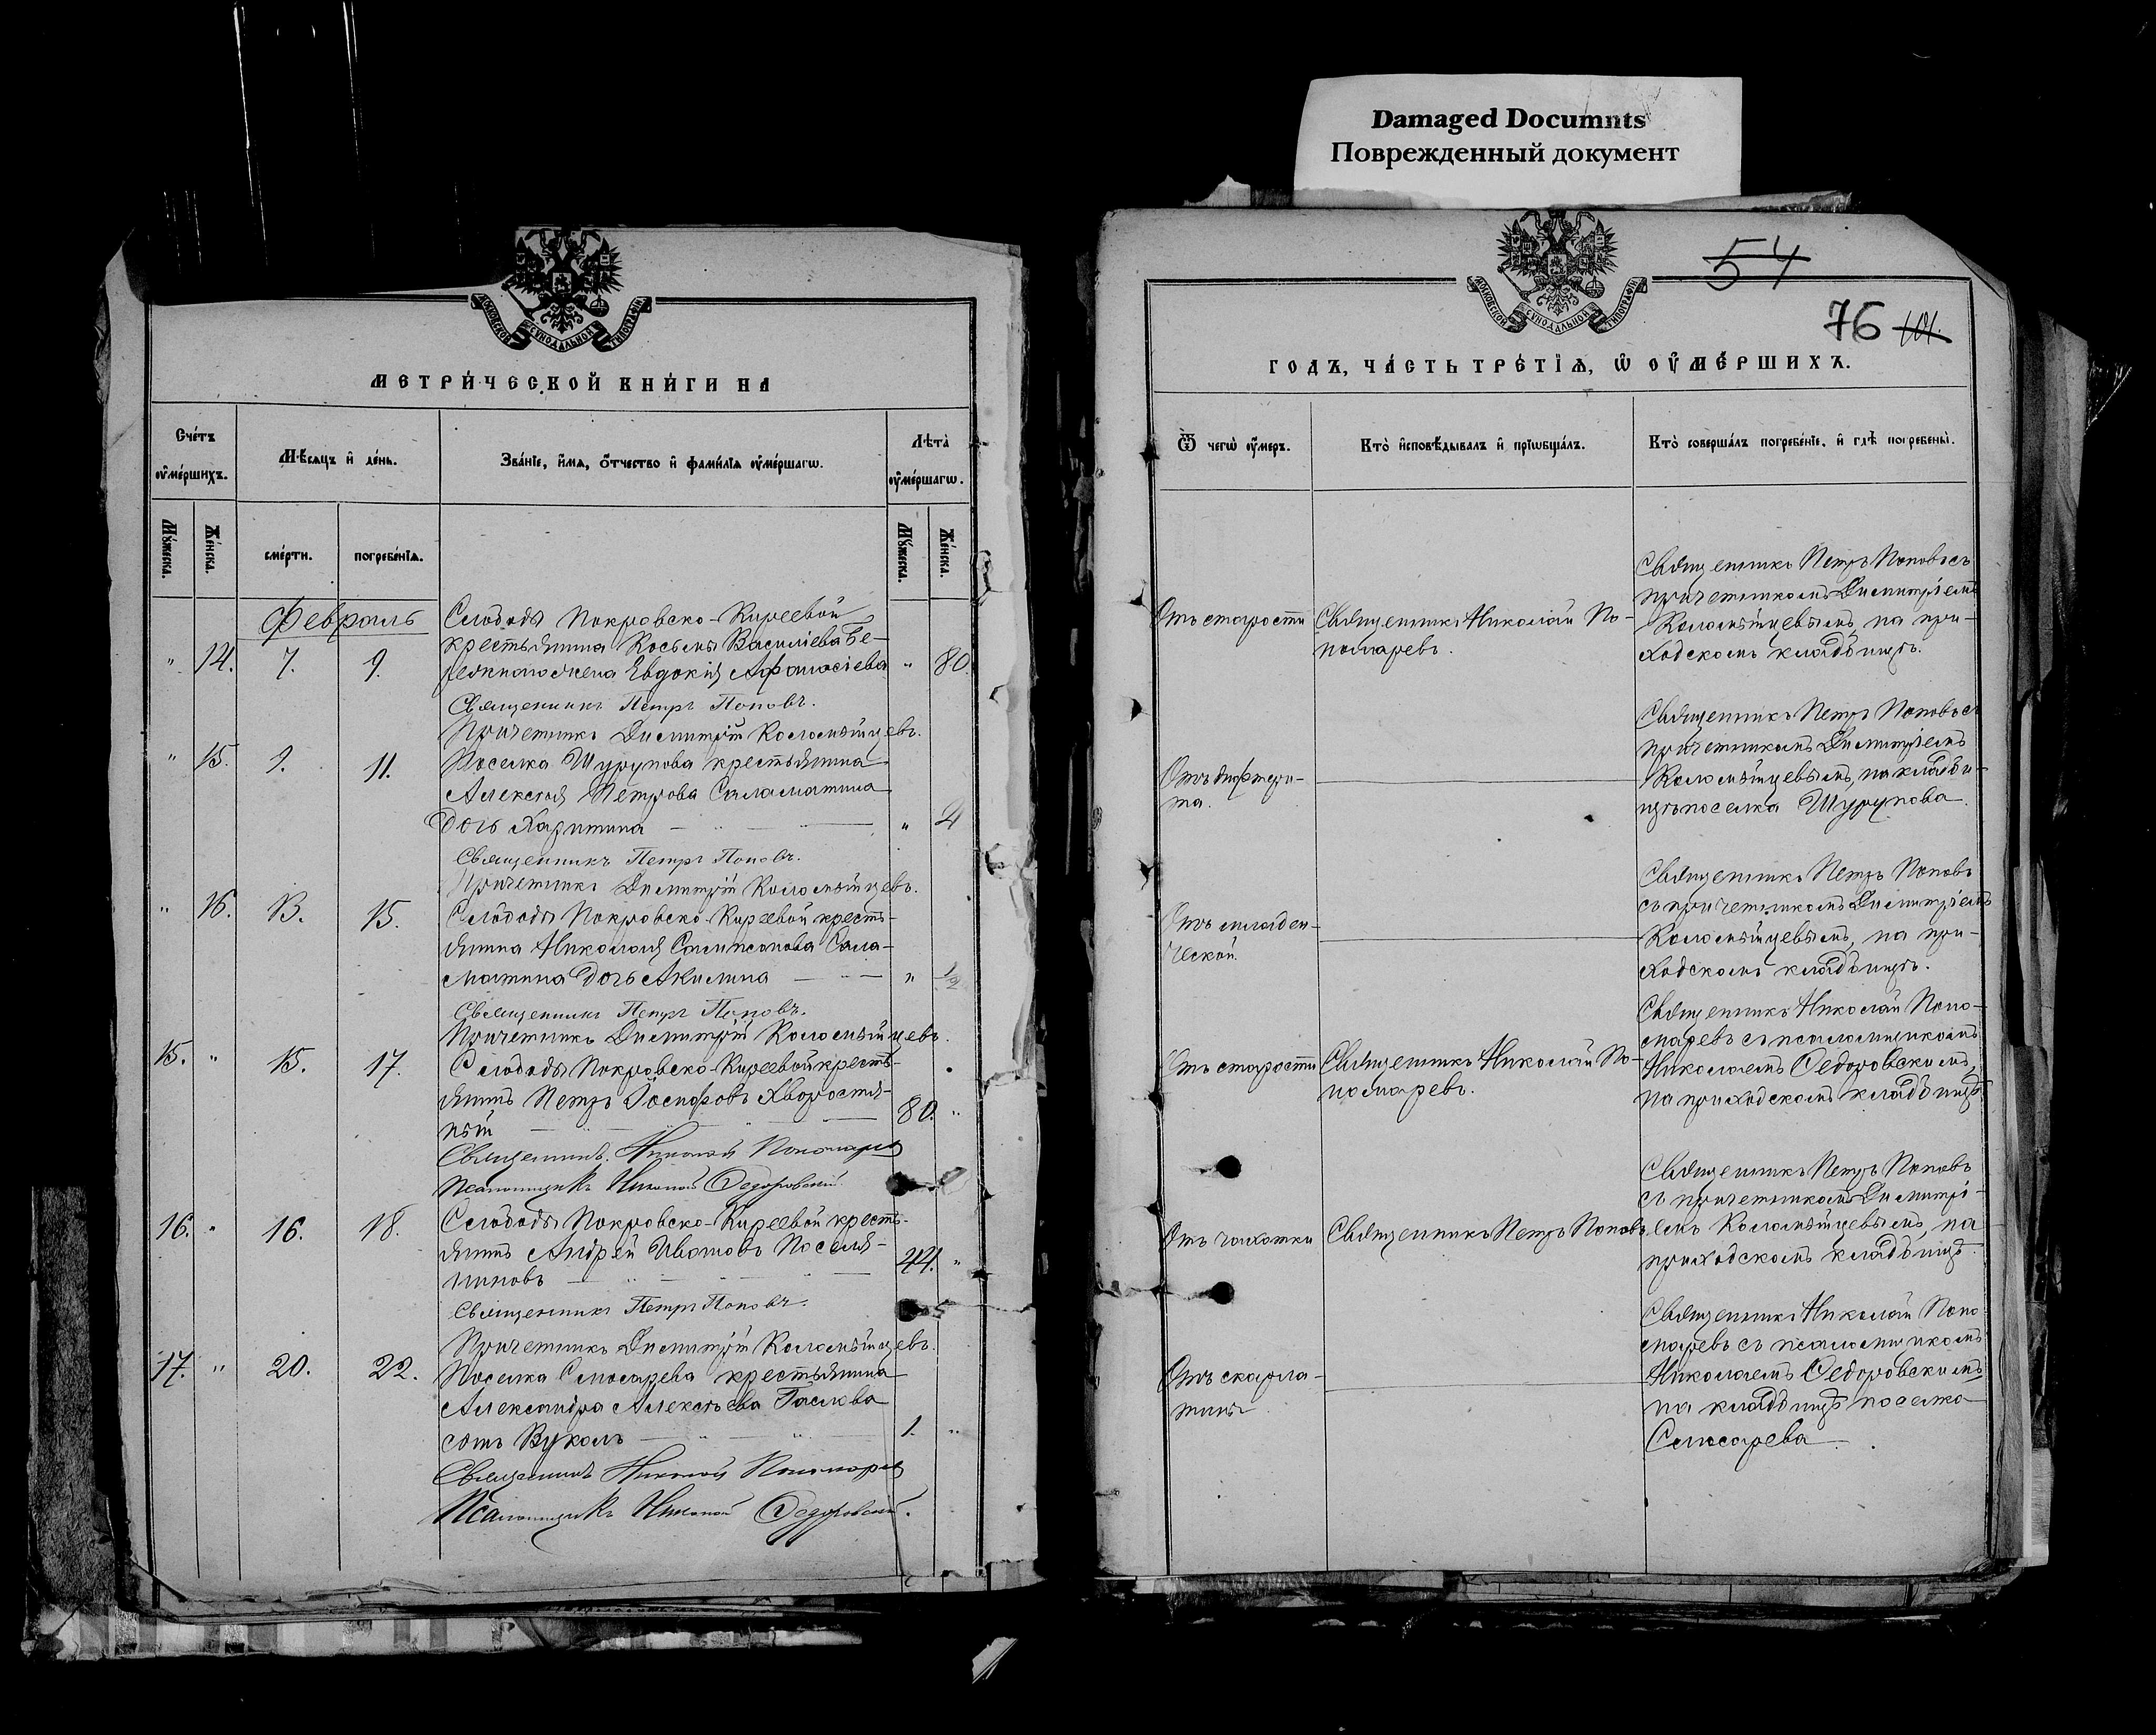 Damaged Documnts
Поврежденный документ
МОСКОВСКОЙ СѴНОДАЛЬНОЙ ТИПОГРАФІИ
МЕТРИ́ЧЕСКОЙ КНИ́ГИ НА
Сче́тъ ᲂу҆ме́ршихъ.
Мѣ́сяцъ и҆ де́нь.
Зва́нїе, и҆́мя, ѻ҆́тчество и҆ фами́лїя ᲂу҆ме́ршагѡ.
Лѣта̀ ᲂу҆ме́ршагѡ.
Мꙋ́жеска.
Же́нска.
сме́рти.
погребе́нїя.
Мꙋ́жеска.
Же́нска.
Февраль
Слободы Покровско-Киреевой
крестьянина Косьмы Василіева Бе-
" 14. 7. 9. жена Евдокія Афанасіева " 80.
Священникъ Петръ Поповъ.
Причетникъ Димитрій Коломѣйцевъ.
" 15. 9. 11. Поселка Шурупова крестьянина
Алексѣя Петрова Саламатина
дочь Харитина " 4
Священникъ Петръ Поповъ.
Причетникъ Димитрій Коломѣйцевъ.
" 16. 13. 15. Слободы Покровско-Киреевой кресть-
янина Николая Сампсонова Сала-
матина дочь Акилина " 1/2
Священникъ Петръ Поповъ.
Причетникъ Димитрій Коломѣйцевъ.
15. " 15. 17. Слободы Покровско-Киреевой кресть-
янинъ Петръ Іосифовъ Хворостя-
ный 80. "
Священникъ Николай Пономаревъ
Псаломщикъ Николай Федоровский.
16. " 16. 18. Слободы Покровско-Киреевой кресть-
янинъ Андрей Ивановъ Поселя-
ниновъ 44. "
Священникъ Петръ Поповъ.
Причетникъ Димитрій Коломѣйцевъ.
17. " 20. 22. Поселка Слюсарева крестьянина
Александра Алексѣева
сынъ Вуколъ 1. "
Священникъ Николай Пономаревъ
Псаломщикъ Николай Федоровский.
54
76 101.
МОСКОВСКОЙ СѴНОДАЛЬНОЙ ТИПОГРАФІИ
ГОДЪ, ЧА́СТЬ ТРЕ́ТЇѦ, Ѡ҆ ОУ҆МЕ́РШИХЪ.
Ѿ чегѡ̀ ᲂу҆́меръ.
Кто̀ и҆сповѣ́дывалъ и҆ прїѡбща́лъ.
Кто̀ соверша́лъ погребе́нїе, и҆ гдѣ̀ погребены̀.
Отъ старости
Священникъ Николай По-
номаревъ.
Священникъ Петръ Поповъ съ
причетникомъ Димитріемъ
Коломѣйцевымъ, на при-
ходскомъ кладбищѣ.
Отъ дифтери-
та.
Священникъ Петръ Поповъ съ
причетникомъ Димитріемъ
Коломѣйцевымъ, на кладби-
щѣ поселка Шурупова.
Отъ младен-
ческой.
Священникъ Петръ Поповъ
съ причетникомъ Димитріемъ
Коломѣйцевымъ, на при-
ходскомъ кладбищѣ.
Отъ старости
Священникъ Николай По-
номаревъ.
Священникъ Николай Поно-
маревъ съ псаломщикомъ
Николаемъ Федоровскимъ,
на приходскомъ кладбищѣ
Отъ чахотки
Священникъ Петръ Поповъ
Священникъ Петръ Поповъ
съ причетникомъ Димитрі-
емъ Коломѣйцевымъ, на
приходскомъ кладбищѣ.
Отъ скарла-
тины
Священникъ Николай Поно-
маревъ съ псаломщикомъ
Николаемъ Федоровскимъ
на кладбищѣ поселка
Слюсарева.